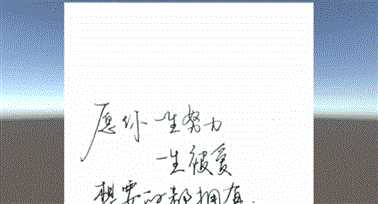 愿你一生努力
一生被爱
想要的都拥有